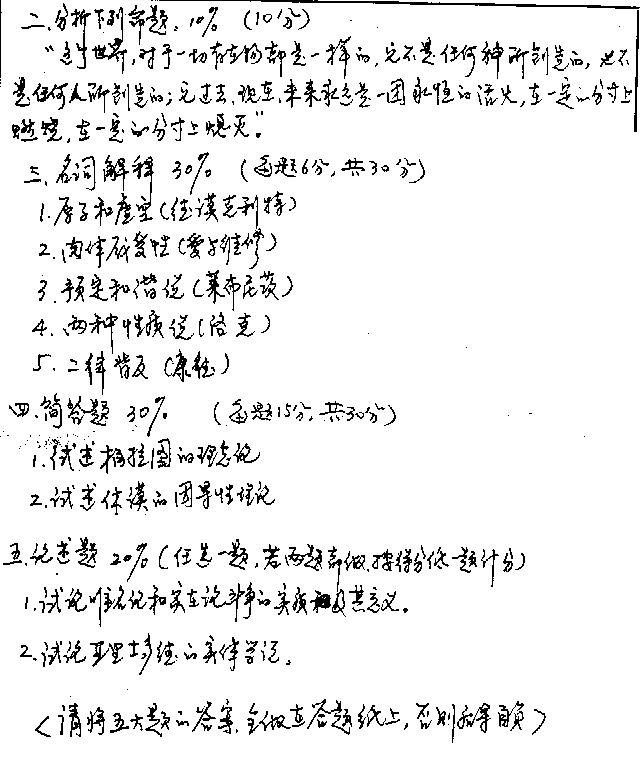 二、分析下列命题。10% (10分)
“这个世界,对于一切存在物都是一样的,它不是任何神所创造的,也不
是任何人所创造的;它过去、现在、未来永远是一团永恒的活火,在一定的分寸上
燃烧,在一定的分寸上熄灭”。
三、名词解释 30% (每题6分,共30分)
1.原子和虚空(德谟克利特)
2.肉体感受性(爱尔维修)
3.预定和谐说(莱布尼茨)
4.两种性质说(洛克)
5.二律背反(康德)
四.简答题 30% (每题15分,共30分)
1.试述柏拉图的理念论
2.试述休谟的因果性理论
五.论述题 20%(任选一题,若两题都做,按得分低一题计分)
1.试论唯名论和实在论斗争的实质及其意义。
2.试论亚里士多德的实体学说。
<请将五大题的答案,全做在答题纸上,否则后果自负>